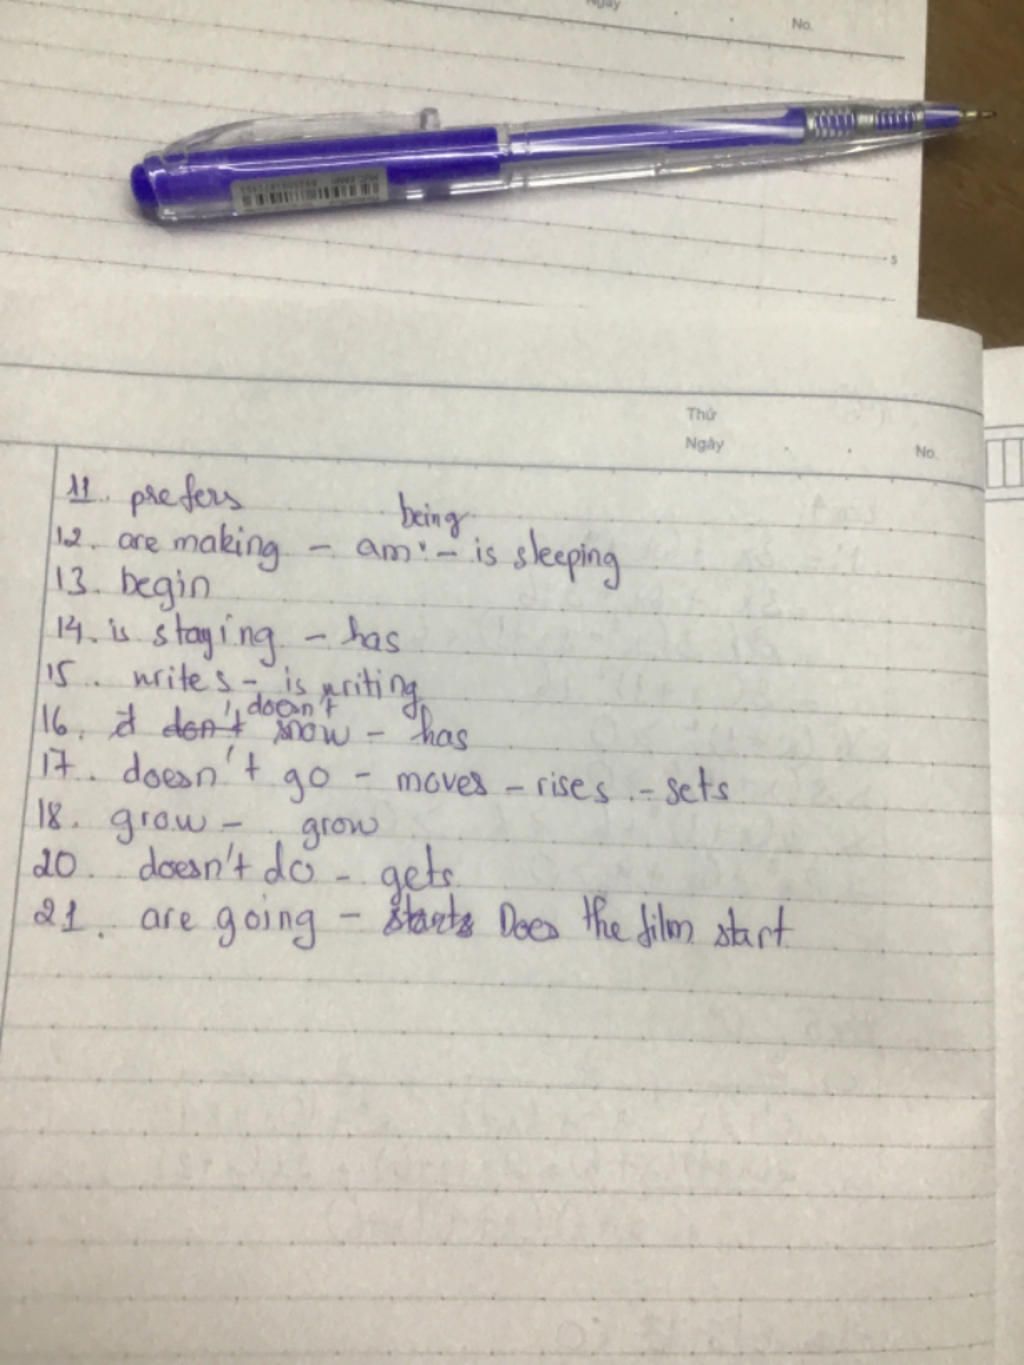 Ngày
No.
5
Thứ
Ngày
No.
11. prefers
being
12. are making - am - is sleeping
13. begin
14. is staying - has
15. writes - is writing
doesn't
16. it don't snow - has
17. doesn't go - moves - rises - sets
18. grow - grow
20. doesn't do - gets
21. are going - starts Does the film start